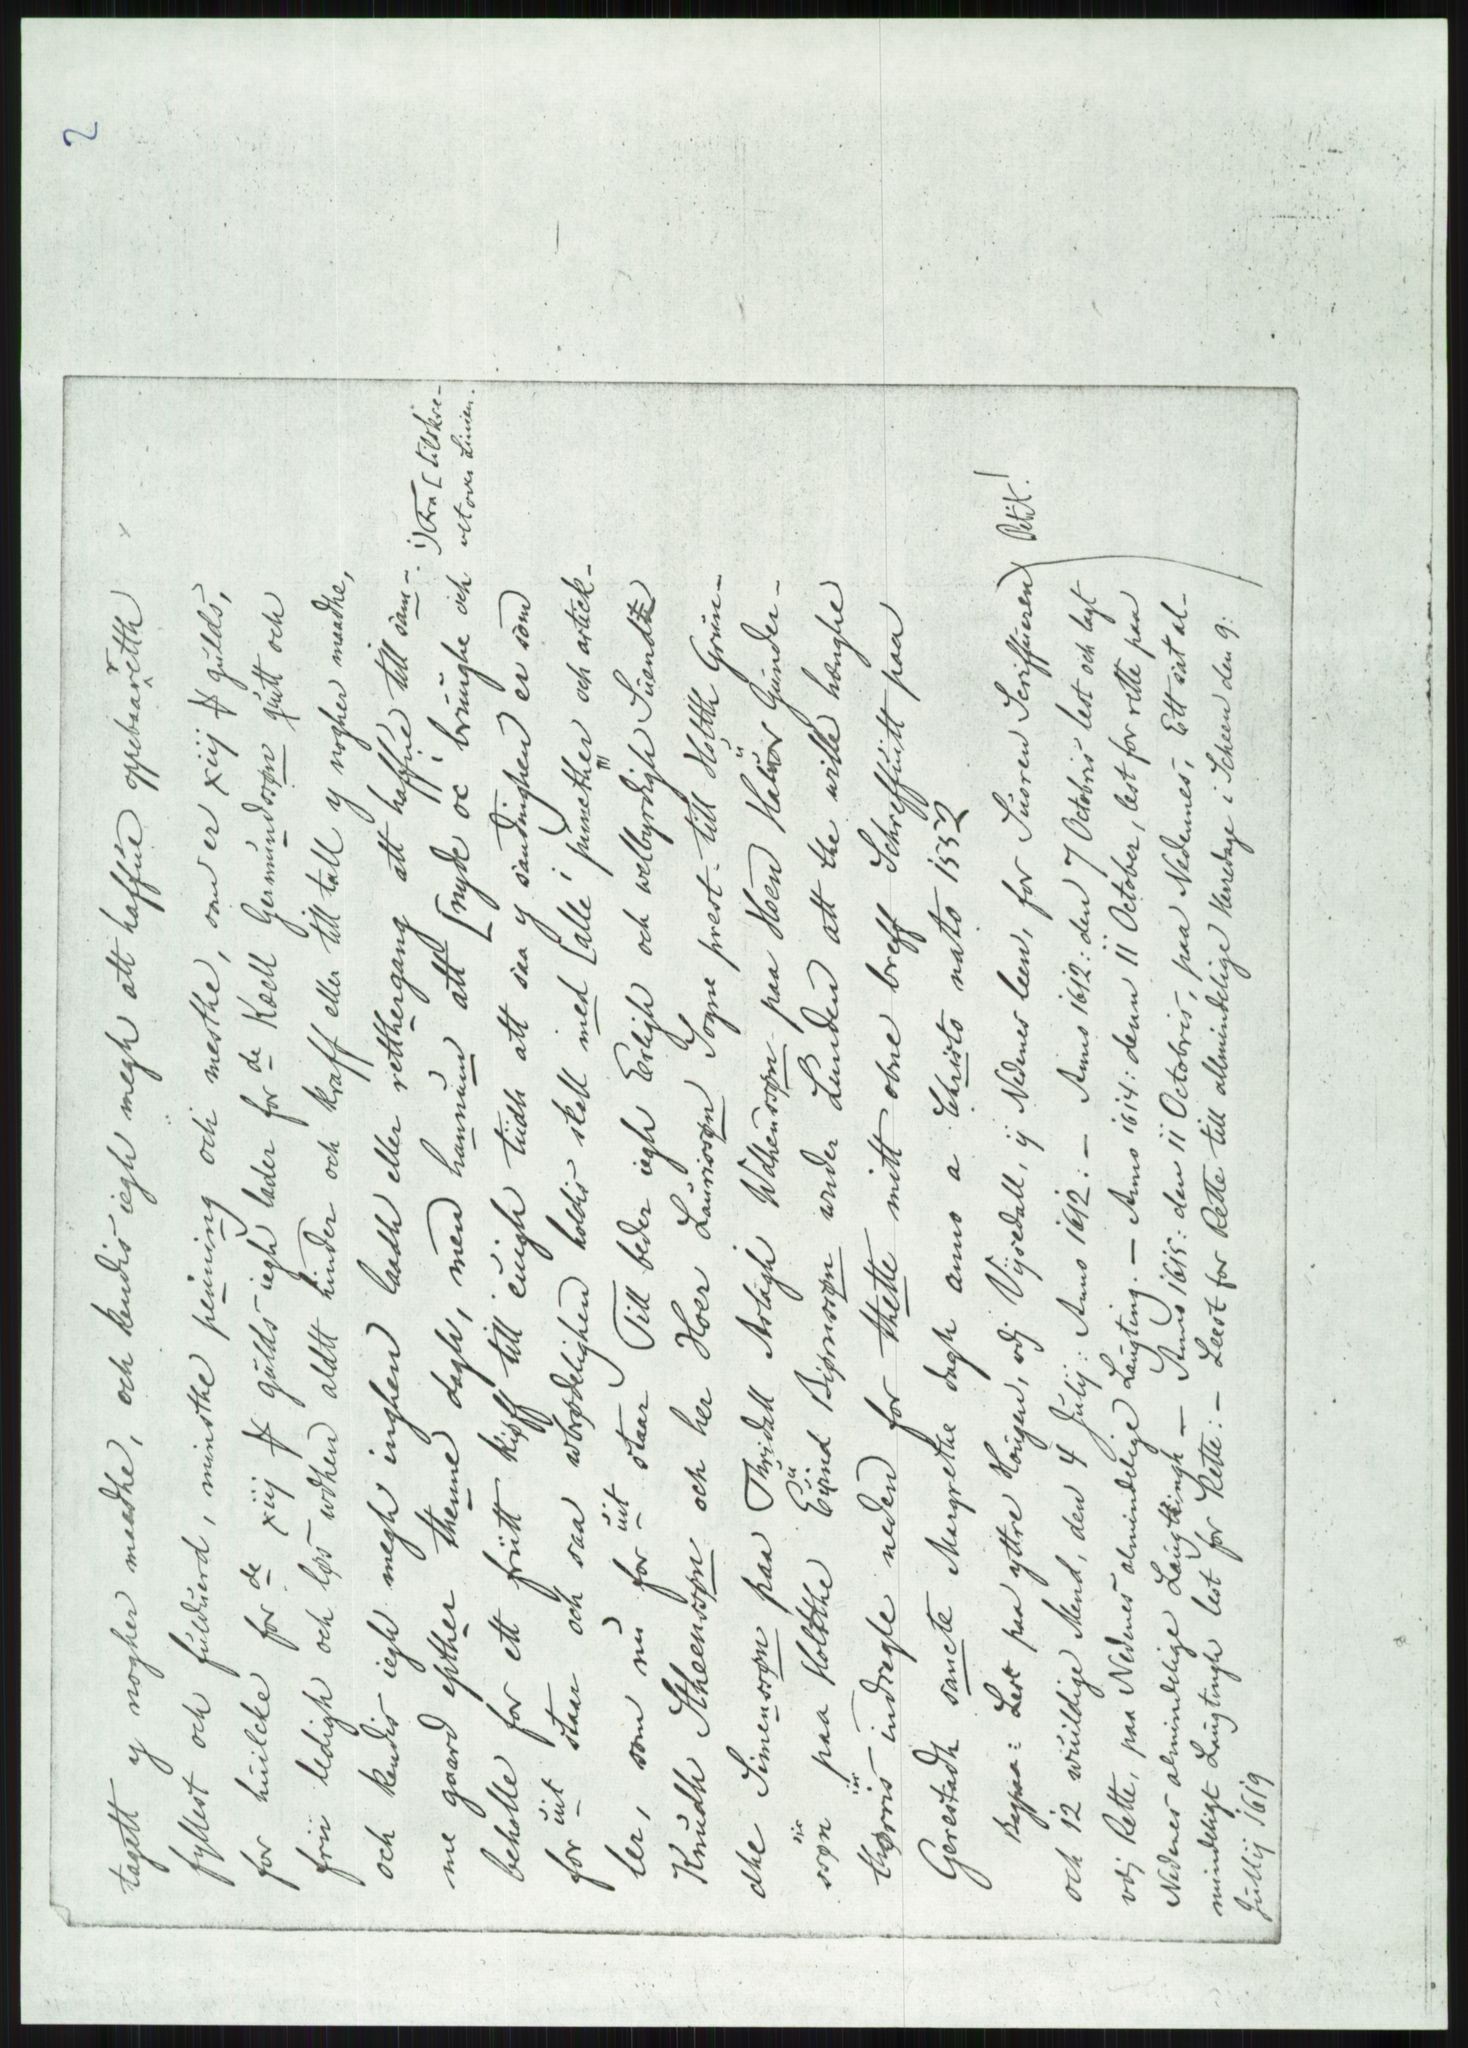 2
tagett y nogher maadhe, och kendis iegh megh att haffue oppebaaretth
fyllest och fulduerd, minsthe penning och mesthe, som er xiij ℔ gulds,
for huilcke for de xiij ℔ gulds iegh lader for de Koell Germundssøn quitt och
frii ledigh och løss wdhen aldtt hinder och kraff eller till tall y nogher maadhe,
och kendis iegh megh inghen laadh eller retthergang att haffue till sam-
me gaard epther thenne dagh, men hannum att [nyde oc bruughe och
beholle for ett friitt kiøff till euigh tiidh att saa y sandinghen er som
for uit staar och saa wbrødelighen holdis skall med [alle i puncther och artick-
ler, som nu for uit staar Till beder iegh Erligh och welbyrdigh Suendtt
Knudh Stheenssøn och her Hoer Laurissøn Sogne prest till Holtth Grün-
dhe Simenssøn paa Thvidall Aslagh Wdhenssøn paa Hoen Haluor Gunder-
ssøn paa Holthe Euind Biørnssøn wnder Lunden att the wille hænghe
thorris indzegle neden for thette mitt obne breff Schreffuitt paa
Gerestadh sancte Margrethe dagh anno a Christo nato 1552
1) Fra [ tilskre-
vet over Linien.
Bagpaa: Lest paa yttre Hougen, vdj Vijsedall, ij Nedenes leen, for Suoren Scriffueren
Betik!
och 12 wuildige Mend, den 4 Julij: Anno 1612: - Anno 1612: den 7 Octobris lest och lagt
vdj Rette, paa Nedenes almindelige Laugting. - Anno 1614: denn 11 October, lest for rette paa
Nedenes almindelige Laugthingh - Anno 1615: den 11 Octobris, paa Nedennes, Ett sist al-
mindeligt Laugtingh lest for Rette: - Leest for Rette till allmindelige Herredage i Scheen den 9:
Jullij 1619